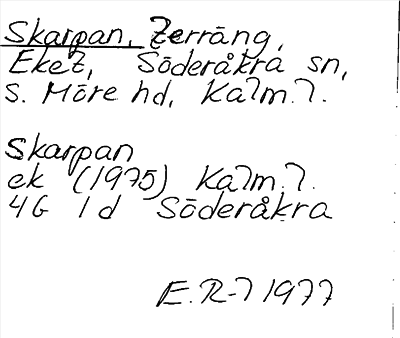 Skarpan, Terräng,
Eket, Söderåkra sn,
S. Möre hd, Kalm. l.
Skarpan
ek (1975) Kalm. l.
4G 1d Söderåkra
E.R-l 1977